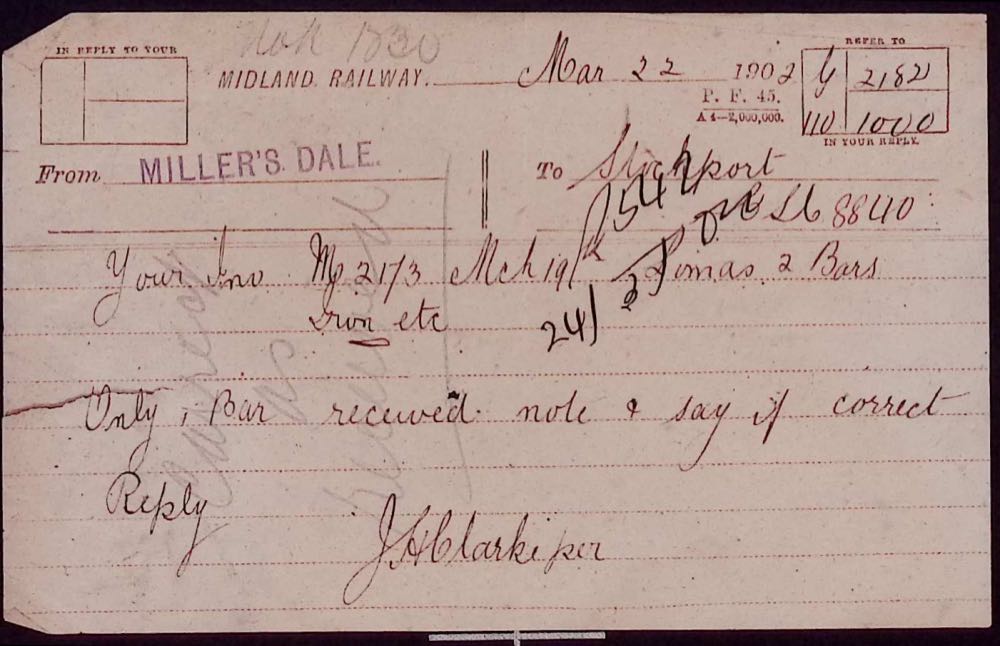 IN REPLY TO YOUR
REFER TO
MIDLAND RAILWAY. Mar 22 1902
G 2182
P. F. 45.
A 4—2,000,000.
110 1000
IN YOUR REPLY.
From MILLER'S DALE. To Stockport
542
8840
Your Inv M 2173 Mch 19 Lomas 2 Bars
Iron etc
24/3
Only 1 Bar received note & say if correct
Reply
J H Clark per